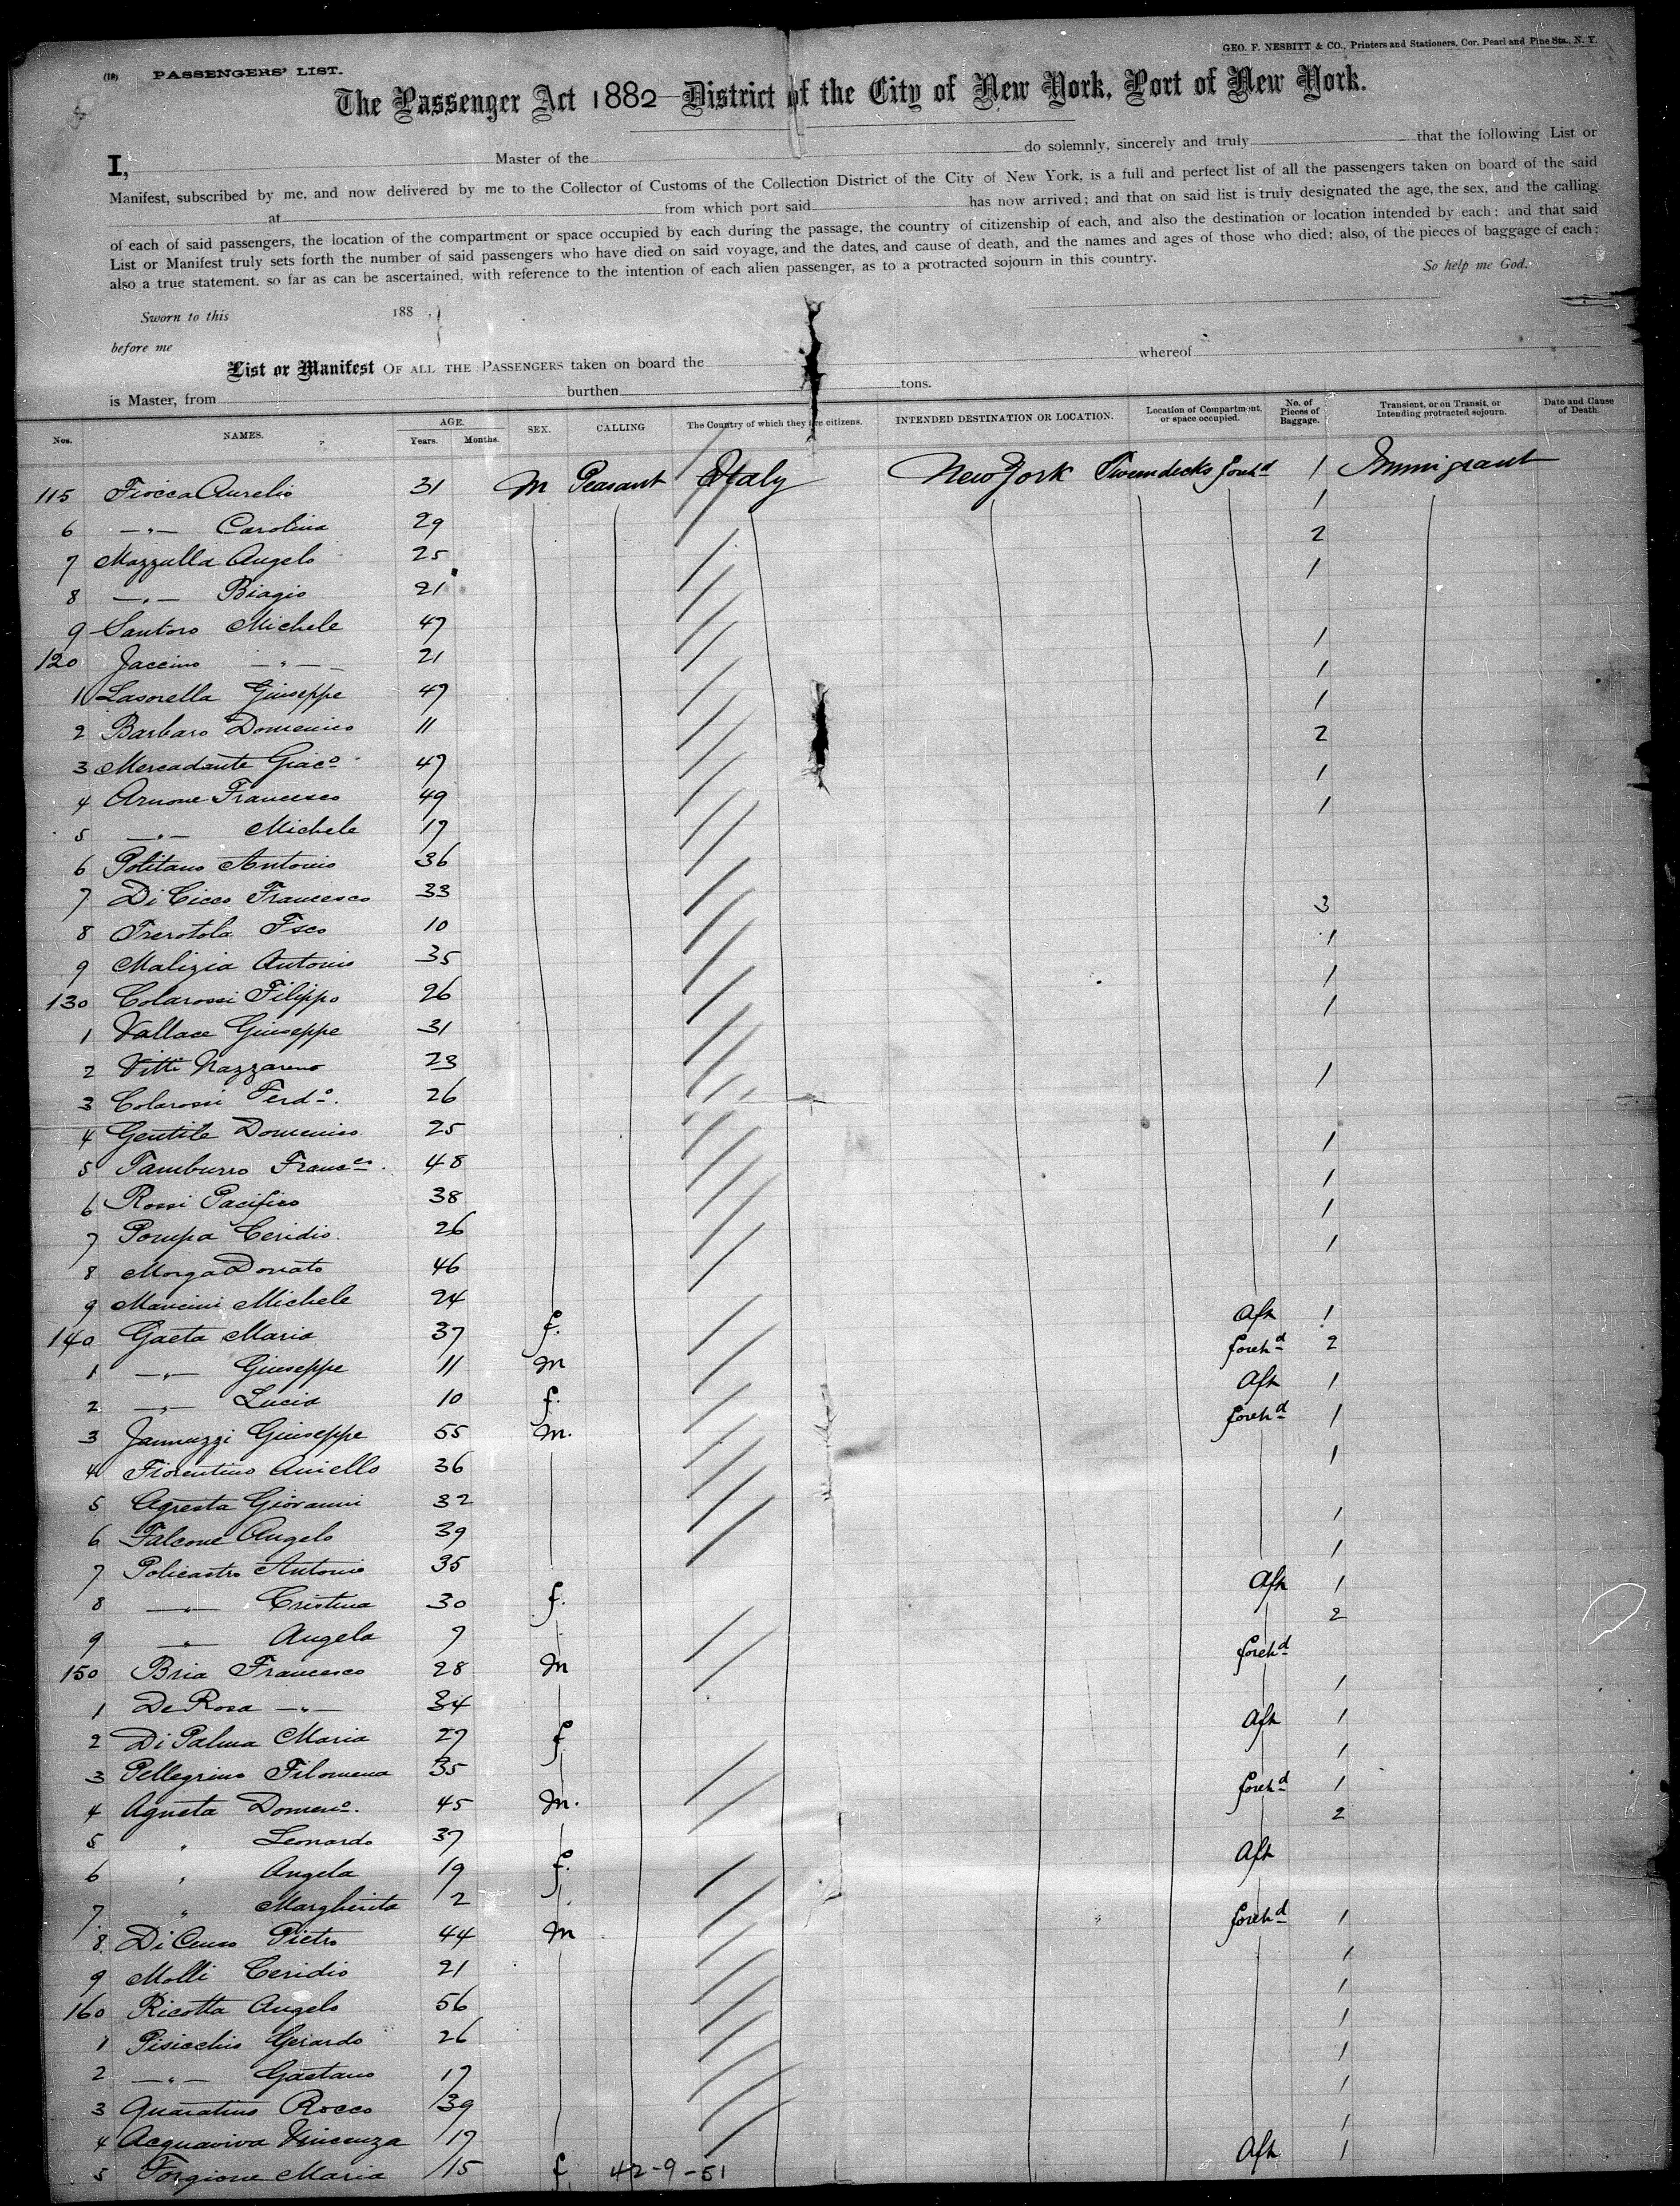 GEO. F. NESBITT & CO., Printers and Stationers, Cor. Pearl and Pine Sts., N. Y.
(10) PASSENGERS' LIST.
The Passenger Act 1882 District of the City of New York, Port of New York.
I, Master of the do solemnly, sincerely and truly that the following List or
Manifest, subscribed by me, and now delivered by me to the Collector of Customs of the Collection District of the City of New York, is a full and perfect list of all the passengers taken on board of the said
at from which port said has now arrived; and that on said list is truly designated the age, the sex, and the calling
of each of said passengers, the location of the compartment or space occupied by each during the passage, the country of citizenship of each, and also the destination or location intended by each; and that said
List or Manifest truly sets forth the number of said passengers who have died on said voyage, and the dates, and cause of death, and the names and ages of those who died; also, of the pieces of baggage of each;
also a true statement. so far as can be ascertained, with reference to the intention of each alien passenger, as to a protracted sojourn in this country. So help me God.
Sworn to this 188 .
before me
List or Manifest OF ALL THE PASSENGERS taken on board the whereof
is Master, from burthen tons.
Nos. NAMES. AGE. Years. Months. SEX. CALLING The Country of which they are citizens. INTENDED DESTINATION OR LOCATION. Location of Compartment, or space occupied. No. of Pieces of Baggage. Transient, or on Transit, or Intending protracted sojourn. Date and Cause of Death.
115 Fiocca Aurelio 31 M Peasant Italy New York Tweendecks 1 Immigrant
6 —"— Carolina 29 1
7 Mazzulla Angelo 25 2
8 —"— Biagio 21 1
9 Santoro Michele 47
120 Jaccino —"— 21 1
1 Lasorella Giuseppe 47 1
2 Barbaro Domenico 11 1
3 Mercadante Giac° 47 2
4 Arnone Francesco 49 1
5 —"— Michele 17 1
6 Politano Antonio 36
7 Di Cicco Francesco 33
8 Trerotola Fsco 10 3
9 Malizia Antonio 35 1
130 Colarossi Filippo 26 1
1 Vallace Giuseppe 31 1
2 Vitti Nazzareno 23
3 Colarossi Ferd°. 26 1
4 Gentile Domenico 25
5 Tamburro Franc°. 48 1
6 Rossi Pacifico 38 1
7 Pompa Ceridio 26 1
8 Morga Donato 46 1
9 Mancini Michele 24
140 Gaeta Maria 37 f. Aft 1
1 —"— Giuseppe 11 m foreh d 2
2 —"— Lucia 10 f. Aft 1
3 Jannuzzi Giuseppe 55 m. foreh d 1
4 Fiorentino Aniello 36 1
5 Agresta Giovanni 32
6 Falcone Angelo 39 1
7 Policastro Antonio 35 1
8 —"— Cristina 30 f. Aft 1
9 —"— Angela 7 2
150 Bria Francesco 28 m foreh d
1 De Rosa —"— 34 1
2 Di Palma Maria 27 f Aft 1
3 Pellegrino Filomena 35 1
4 Agneta Domen°. 45 m. foreh d 1
5 " Leonardo 37 2
6 " Angela 19 f. Aft
7 " Margherita 2
8 Pietro 44 m foreh d 1
9 Molli Ceridio 21 1
160 Ricotta Angelo 56 1
1 Pisicchio Gerardo 26 1
2 —"— Gaetano 17 1
3 Quaratino Rocco 39 1
4 Acquaviva Vincenza 17 1
5 Forgione Maria 15 f 42-9-51 Aft 1